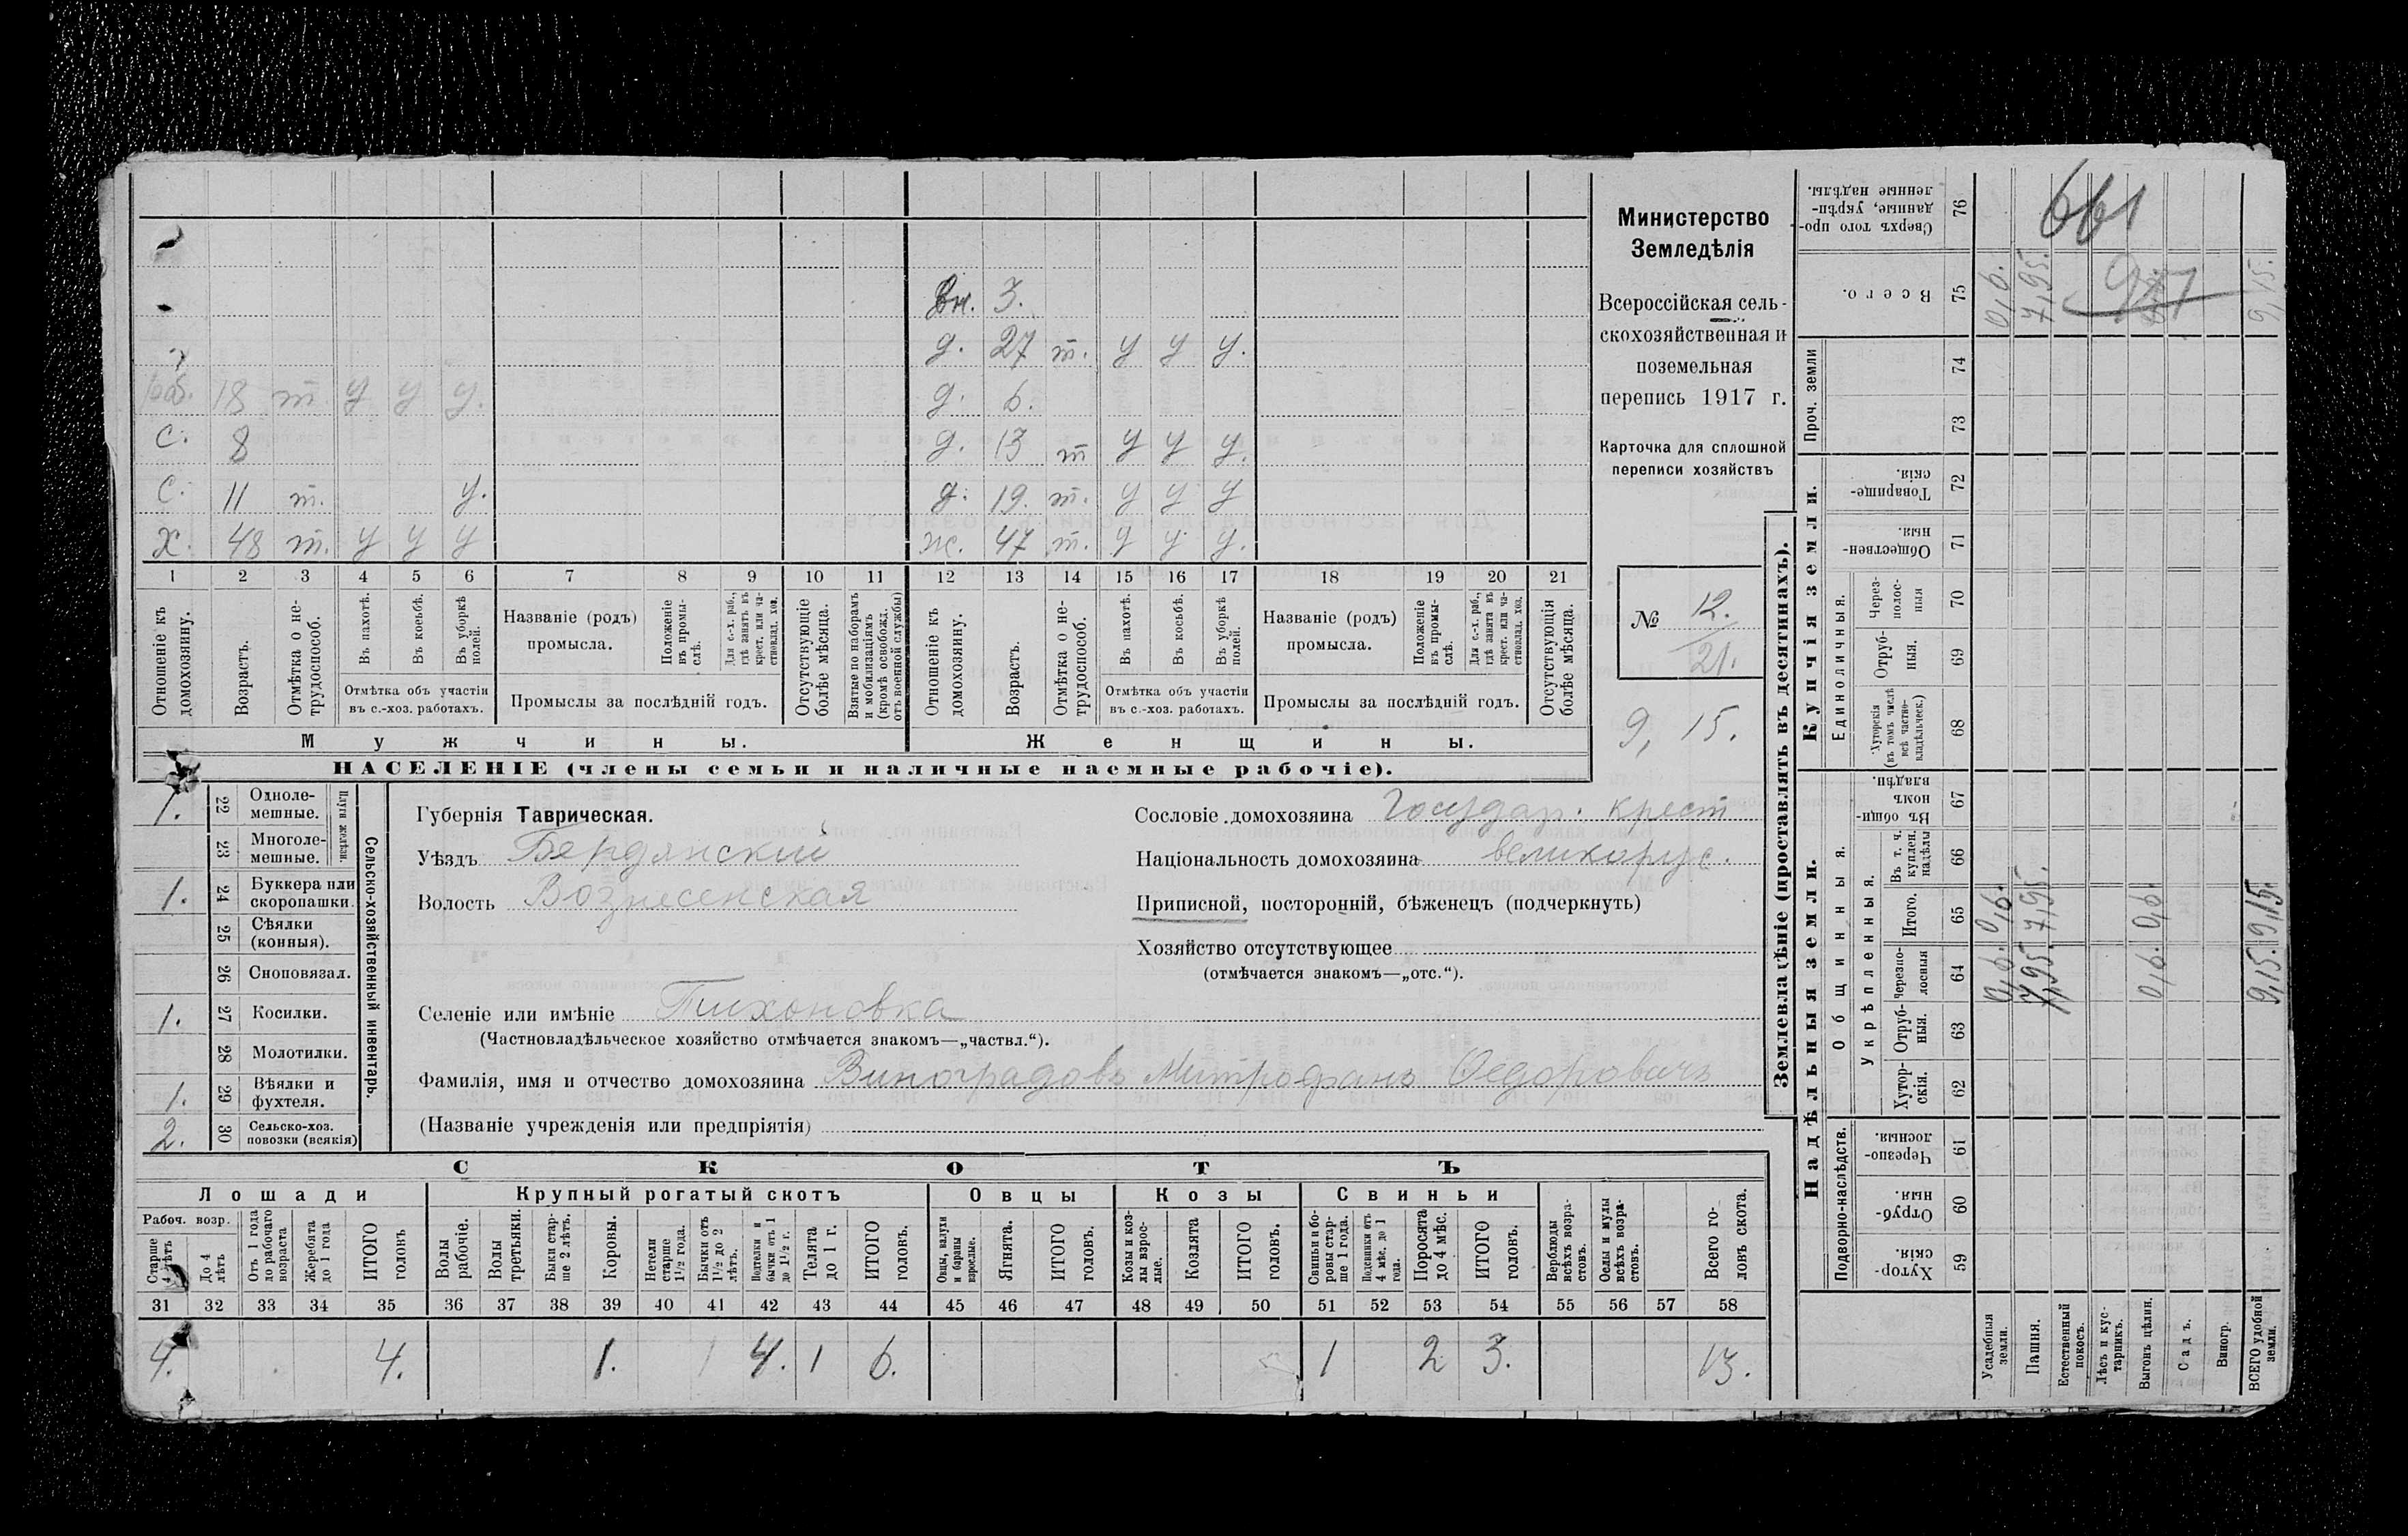 вн. 3.
д. 27 т. у у у.
раб. 18 т у у у. д. 6.
с. 8 д. 13 т у у у.
с. 11 т. у. д. 19. т. у у у
х. 48 т. у у у ж. 47 т. у у у.
1 2 3 4 5 6 7 8 9 10 11 12 13 14 15 16 17 18 19 20 21
Отношеніе къ домохозяину.
Возрастъ.
Отмѣтка о не-трудоспособ.
Въ пахотѣ.
Въ косьбѣ.
Въ уборкѣ полей.
Отмѣтка объ участіи
въ с.-хоз. работахъ.
Названіе (родъ)
промысла.
Положеніе въ промы-слѣ.
Для с.-х. раб., гдѣ занятъ въ крест. или ча-стновлад. хоз.
Промыслы за послѣдній годъ.
Отсутствующіе болѣе мѣсяца.
Взятые по наборамъ и мобилизаціямъ (кромѣ освобожд. отъ военной службы)
Отношеніе къ домохозяину.
Возрастъ.
Отмѣтка о не-трудоспособ.
Въ пахотѣ.
Въ косьбѣ.
Въ уборкѣ полей.
Отмѣтка объ участіи
въ с.-хоз. работахъ.
Названіе (родъ)
промысла.
Положеніе въ промы-слѣ.
Для с.-х. раб., гдѣ занята въ крест. или ча-стновлад. хоз.
Промыслы за послѣдній годъ.
Отсутствующія болѣе мѣсяца.
Мужчины.
Женщины.
НАСЕЛЕНІЕ (члены семьи и наличные наемные рабочіе).
Министерство
Земледѣлія
Всероссійская сель-
скохозяйственная и
поземельная
перепись 1917 г.
Карточка для сплошной
переписи хозяйствъ
№ 12.
21.
9, 15.
1. 22 Одноле-мешные.
23 Многоле-мешные.
Плуги желѣзн.
1. 24 Буккера или скоропашки.
25 Сѣялки (конныя).
26 Сноповязал.
1. 27 Косилки.
28 Молотилки.
1. 29 Вѣялки и фухтеля.
2. 30 Сельско-хоз. повозки (всякія)
Сельско-хозяйственный инвентарь.
Губернія Таврическая.
Уѣздъ Бердянскій
Волость Вознесенская
Сословіе домохозяина Государ. крест
Національность домохозяина великорус.
Приписной, посторонній, бѣженецъ (подчеркнуть)
Хозяйство отсутствующее
(отмѣчается знакомъ—„отс.“).
Селеніе или имѣніе Тихоновка
(Частновладѣльческое хозяйство отмѣчается знакомъ—„частвл.“).
Фамилія, имя и отчество домохозяина Виноградовъ Митрофанъ Ѳедоровичъ
(Названіе учрежденія или предпріятія)
СКОТЪ
Лошади
Крупный рогатый скотъ
Овцы
Козы
Свиньи
Рабоч. возр.
Старше 4 лѣтъ
До 4 лѣтъ
Отъ 1 года до рабочаго возраста
Жеребята до 1 года
ИТОГО головъ
Волы рабочіе.
Волы третьяки.
Быки стар-ше 2 лѣтъ.
Коровы.
Нетели старше 1½ года.
Бычки отъ 1½ до 2 лѣтъ.
Подтелки и бычки отъ 1 до 1½ г.
Телята до 1 г.
ИТОГО головъ.
Овцы, валухи и бараны взрослые.
Ягнята.
ИТОГО головъ.
Козы и коз-лы взрос-лые.
Козлята
ИТОГО головъ.
Свиньи и бо-ровы стар-ше 1 года.
Подсвинки отъ 4 мѣс. до 1 года.
Поросята до 4 мѣс.
ИТОГО головъ.
Верблюды всѣхъ возра-стовъ.
Ослы и мулы всѣхъ возра-стовъ.
Всего го-ловъ скота.
31 32 33 34 35 36 37 38 39 40 41 42 43 44 45 46 47 48 49 50 51 52 53 54 55 56 57 58
4. 4. 1. 4. 1 6. 1 2 3. 13.
Землевладѣніе (проставлять въ десятинахъ).
Надѣльныя земли.
Купчія земли.
Проч. земли
Подворно-наслѣдств.
Общинныя.
Укрѣпленныя.
Единоличныя.
Хутор-скія. 59
Отруб-ныя. 60
Черезпо-лосныя. 61
Хутор-скія. 62
Отруб-ныя. 63
Черезпо-лосныя 64
Итого. 65
Въ т. ч. куплен. надѣлы 66
Въ общи-номъ владѣн. 67
Хуторскія (въ томъ числѣ всѣ частно-владѣльческ.) 68
Отруб-ныя. 69
Через-полос-ныя 70
Обществен-ныя. 71
Товарище-скія. 72
73
74
Всего. 75
Сверхъ того про-данные, укрѣп-ленные надѣлы. 76
Усадебныя земли. 0,6. 0,6. 0,6.
Пашня. 7,95. 7,95. 7,95.
Естественный покосъ.
Лѣсъ и кус-тарникъ.
Выгонъ цѣлин. 0,6. 0,6.
Садъ.
Виногр.
ВСЕГО удобной земли. 9,15. 9,15. 9,15.
661